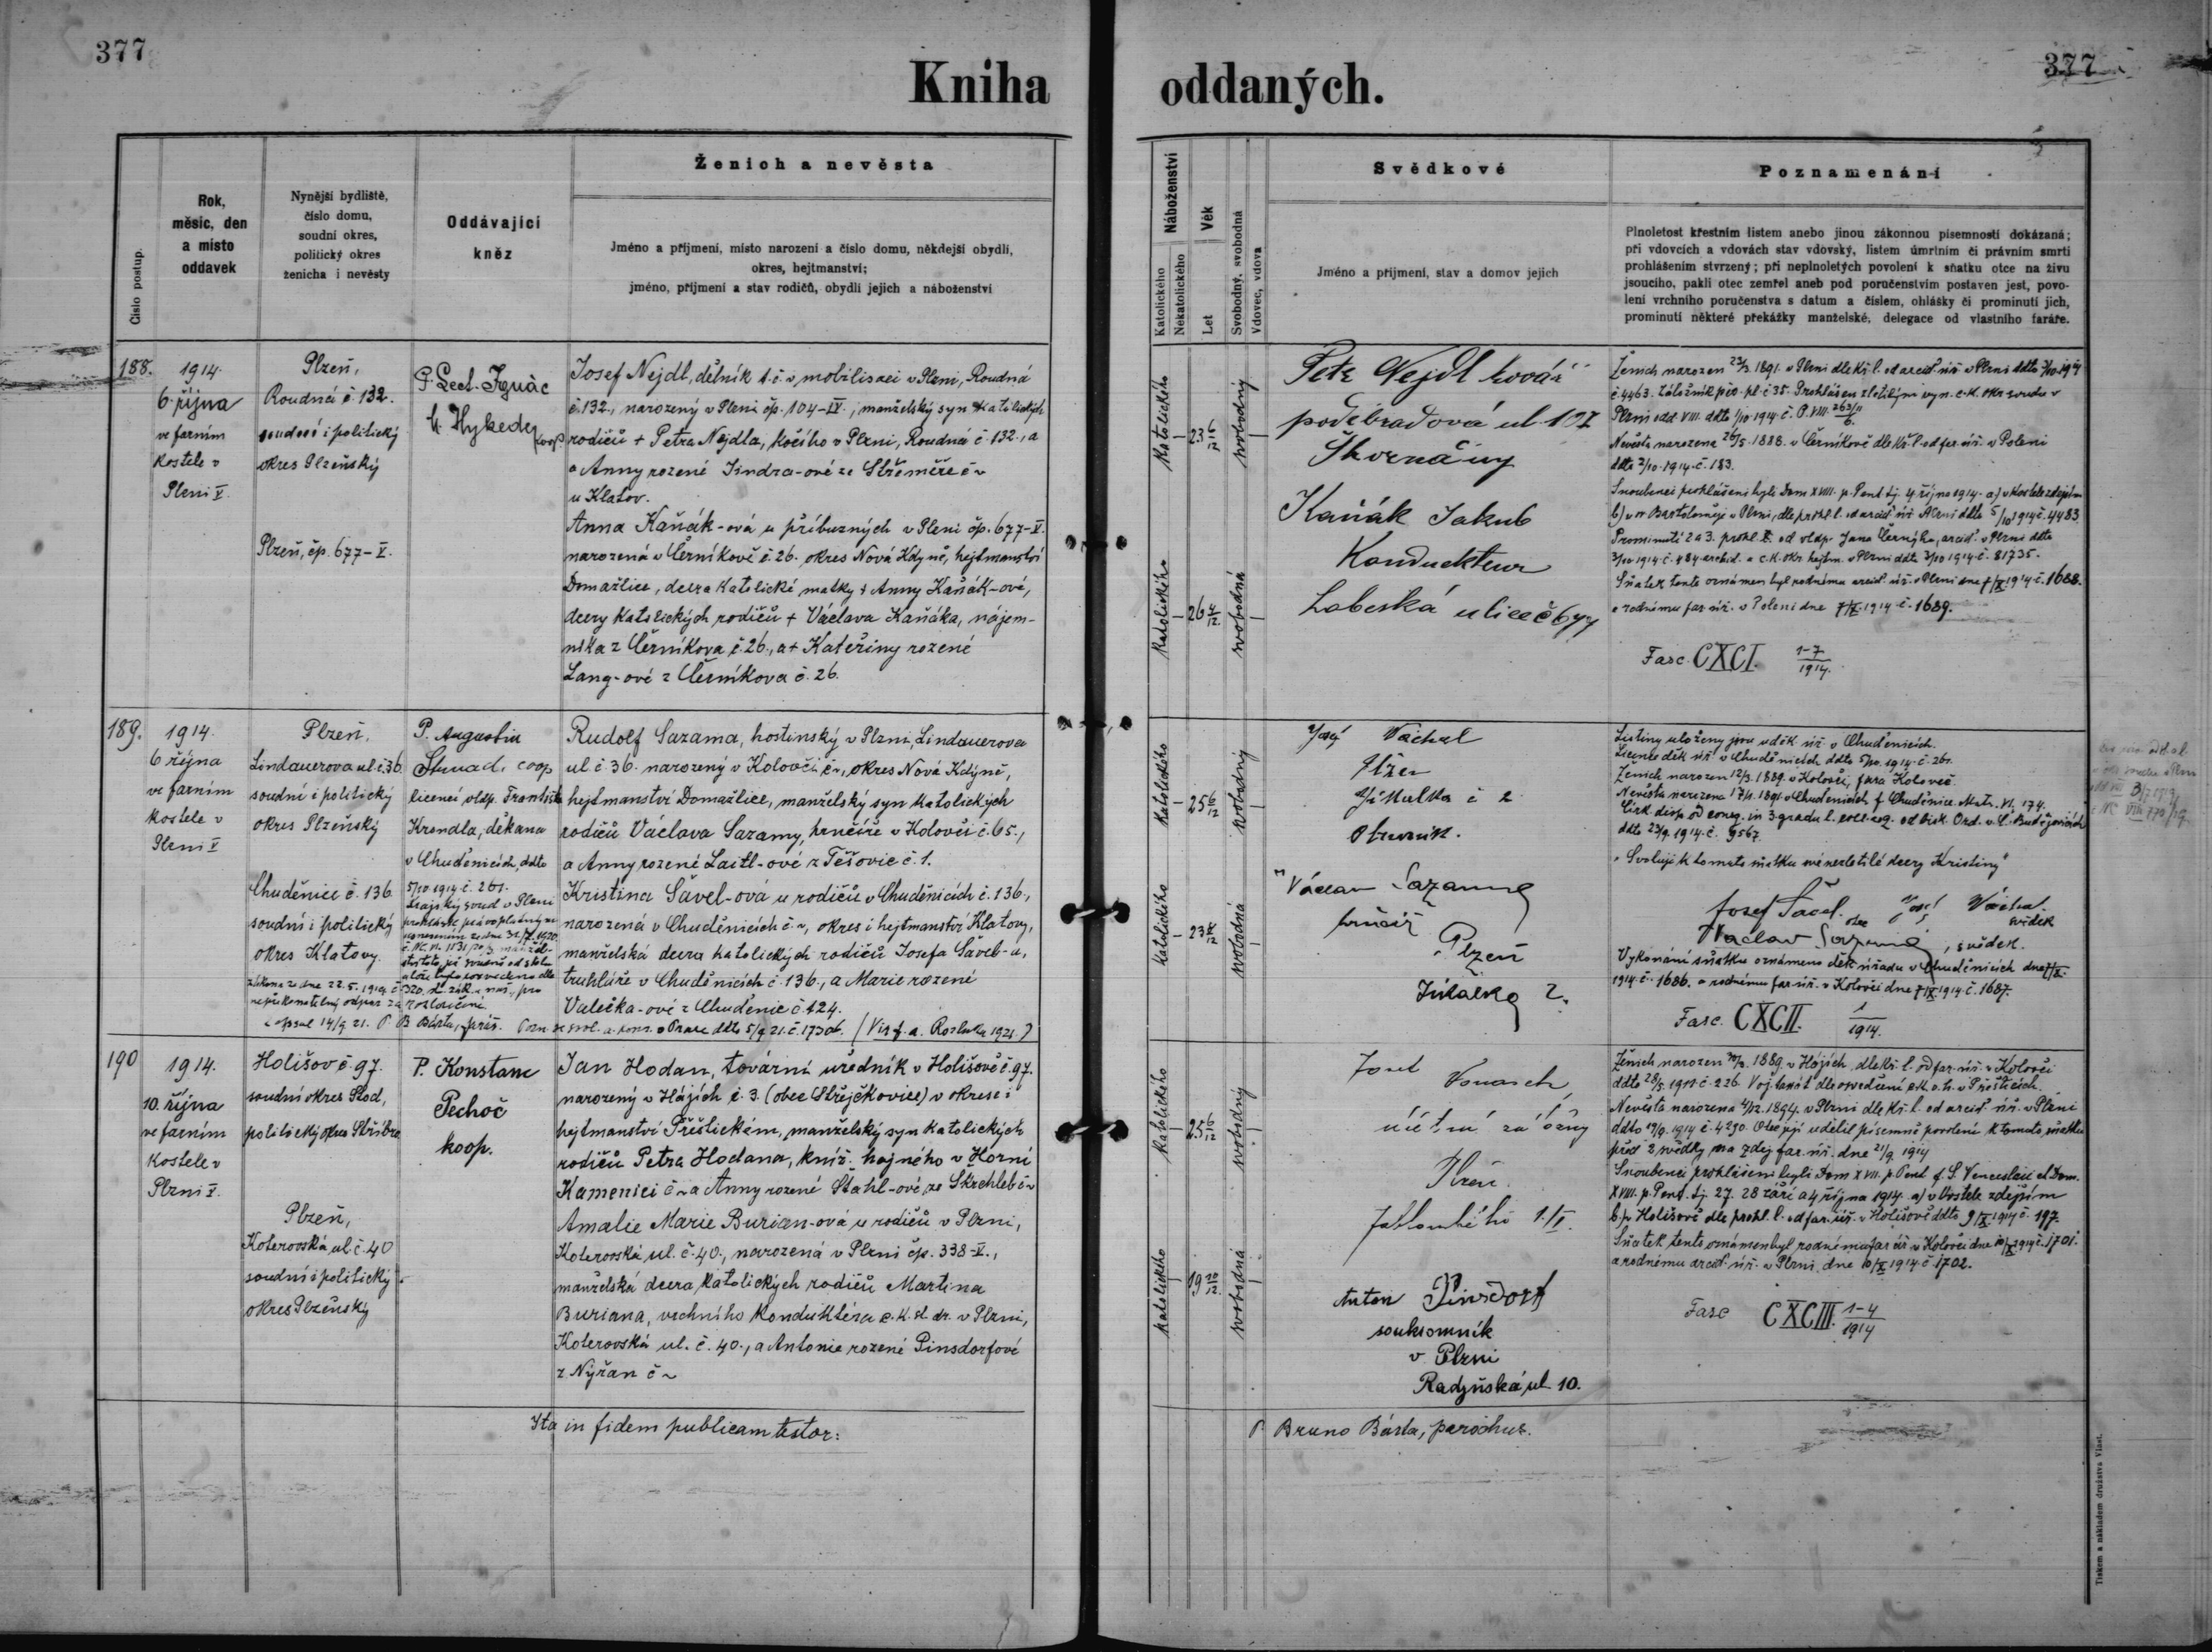 377
377
Kniha oddaných.
Číslo postup.
Rok,
měsíc, den
a místo
oddavek
Nynější bydliště,
číslo domu,
soudní okres,
politický okres
ženicha i nevěsty
Oddávající
kněz
Ženich a nevěsta
Jméno a příjmení, místo narození a číslo domu, někdejší obydlí,
okres, hejtmanství;
jméno, příjmení a stav rodičů, obydlí jejich a náboženství
Náboženství
Katolického
Nekatolického
Věk
Let
Svobodný, svobodná
Vdovec, vdova
Svědkové
Jméno a příjmení, stav a domov jejich
Poznamenání
Plnoletost křestním listem anebo jinou zákonnou písemností dokázaná;
při vdovcích a vdovách stav vdovský, listem úmrtním či právním smrti
prohlášením stvrzený; při neplnoletých povolení k sňatku otce na živu
jsoucího, pakli otec zemřel aneb pod poručenstvím postaven jest, povo-
lení vrchního poručenstva s datum a číslem, ohlášky či prominutí jich,
prominutí některé překážky manželské, delegace od vlastního faráře.
188.
1914.
6. října
ve farním
kostele v
Plzni V.
Plzeň,
Roudná č. 132.
soudní i politický
okres Plzeňský
Plzeň, čp. 677-V.
P. Lect. Ignác
Hykedy
koop
Josef Nejdl, dělník t. č. v mobilisaci v Plzni, Roudná
č. 132., narozený v Plzni čp. 104-IV., manželský syn katolických
rodičů + Petra Nejdla, kočího v Plzni, Roudná č. 132., a
a Anny rozené Jindra-ové ze Střeměře č ~
u Klatov.
Anna Kaňák-ová u příbuzných v Plzni čp. 677-V.
narozená v Černíkově č. 26. okres Nová Kdyně, hejtmanství
Domažlice, dcera katolické matky + Anny Kaňák-ové,
dcery katolických rodičů + Václava Kaňáka, nájem-
níka z Černíkova č. 26., a + Kateřiny rozené
Lang-ové z Černíkova č. 26.
katolického
23 6/12
svobodný
katolického
26 4/12
svobodná
Petr Nejdl kovář
poděbradova ul. 107
Škvrňany
Kaňák Jakub
Kondukteur
Lobeská ulice č 677
Ženich narozen 23/3. 1891. v Plzni dle kř. l. od arciď. úř. v Plzni ddto
Nevěsta narozena 26/5. 1888. v Černíkově dle kř. l. od far. úř. v Poleni
ddto 2/10. 1914. č. 183.
Snoubenci prohlášeni byli Dom XVIII. p. Pent. tj. 4. října 1914. a) v kostele zdejším
b) u sv. Bartoloměje v Plzni, dle prohl. l. od arciď. úř. Plzni ddto 5/10 1914 č. 4483.
Prominutí 2 a 3. prohl. od vldp. Jana Černýho, arciď. v Plzni ddto
Sňatek tento oznámen byl rodnému arciď. úř. v Plzni dne 7/X. 1914 č. 1688.
a rodnému far. úř. v Poleni dne 7/X. 1914 č. 1689.
Fasc. CXCI. 1-7/1914.
189.
1914.
6 října
ve farním
kostele v
Plzni V
Plzeň,
Lindauerova ul. č. 36
soudní i politický
okres Plzeňský
Chudenice č. 136
soudní i politický
okres Klatovy.
P. Augustin
Strnad, coop
licencí vldp. Františka
Krondla, děkana
v Chudenicích, ddto
5/10. 1914 č. 261.
Krajský soud v Plzni
Rudolf Sazama, hostinský v Plzni, Lindauerova
ul. č. 36. narozený v Kolovči č ~, okres Nová Kdyně,
hejtmanství Domažlice, manželský syn katolických
rodičů Václava Sazamy, hrnčíře v Kolovči č. 65.,
a Anny rozené Laitl-ové z Těšovic č. 1.
Kristina Šavel-ová u rodičů v Chudenicích č. 136.,
narozená v Chudenicích č. ~, okres i hejtmanství Klatovy,
manželská dcera katolických rodičů Josefa Šavel-a,
truhláře v Chudenicích č. 136., a Marie rozené
Valečka-ové z Chudenic č. 124.
zákona ze dne 22. 5. 1919 č. 320. sb. zák. a nař., pro
nepřekonatelný odpor za rozloučení
zapsal 14/9 21. P. B. Bárta, farář.
katolického
25 6/12
svobodný
katolického
23
svobodná
Josef Váchal
Plzen
č 2
Václav Sazama
hrnčíř
Plzeň
Listiny uloženy jsou u děk. úř. v Chudenicích.
Licence děk. úř. v Chudenicích ddto 5/10. 1914. č. 261.
Ženich narozen 12/3. 1889. v Kolovči, fara Koloveč.
Nevěsta narozena 17/1. 1891. v Chudenicích f. Chudenice. Matr. VI. 174.
ddto 23/9. 1914. č. 9567.
„Svoluji k tomuto sňatku své nezletilé dcery Kristiny"
Josef Šavel.
otec
Josef Váchal.
svědek
Václav Sazama, svědek.
Vykonání sňatku oznámeno děk. úřadu v Chudenicích dne 7/X.
1914. č. 1686. a rodnému far. úř. v Kolovči dne 7/X. 1914. č. 1687.
Fasc. CXCII. 1/1914.
190
1914.
10. října
ve farním
kostele v
Plzni V.
Holišov č. 97.
soudní okres Stod,
politický okres Stříbro
Plzeň,
Koterovská ul. č. 40
soudní i politický
okres Plzeňský
P. Konstanc
Pechoč
koop.
Jan Hodan, tovární úředník v Holišově č. 97.
narozený v Hájích č. 3. (obec Střejčkovice) v okrese i
hejtmanství Přeštickém, manželský syn katolických
rodičů Petra Hodana, kníž. hajného v Horní
Kamenici č ~ a Anny rozené Stahl-ové ze Skrchleb č ~
Amalie Marie Burian-ová u rodičů v Plzni,
Koterovská ul. č. 40., narozená v Plzni čp. 338-V.,
manželská dcera katolických rodičů Martina
Buriana, vrchního konduktéra c. k. st. dr. v Plzni,
Koterovská ul. č. 40., a Antonie rozené Pinsdorfové
z Nýřan č ~
katolického
25 6/12
svobodný
katolického
19 10/12
svobodná
Josef
Plzeň
Anton Pinsdorf
soukromník
v Plzni
Radyňská ul 10.
Nevěsta narozena 4/12. 1894. v Plzni dle kř. l. od arciď. úř. v Plzni
ddto 19/9. 1914 č. 4290. Otec její udělil písemné povolení k tomuto sňatku
před 2 svědky na zdej. far. úř. dne 21/9. 1914
XVIII. p. Pent. tj. 27. 28 září a 4 října 1914. a) v kostele zdejším
b) v Holišově dle prohl. l. od far. úř. v Holišově ddto 9/X. 1914 č. 197.
Sňatek tento oznámen byl rodnému far úř v Kolovči dne 10/X 1914 č. 1701.
a rodnému arciď. úř. v Plzni, dne 10/X 1914. č 1702.
Fasc CXCIII. 1-4/1914
Ita in fidem publicam testor:
P. Bruno Bárta, parochus.
Tiskem a nákladem družstva Vlast.